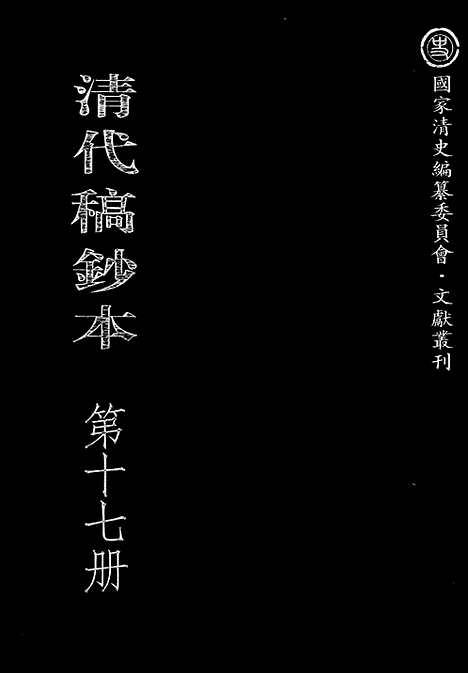 國家清史編纂委員會·文獻叢刊
清代稿鈔本
第十七册